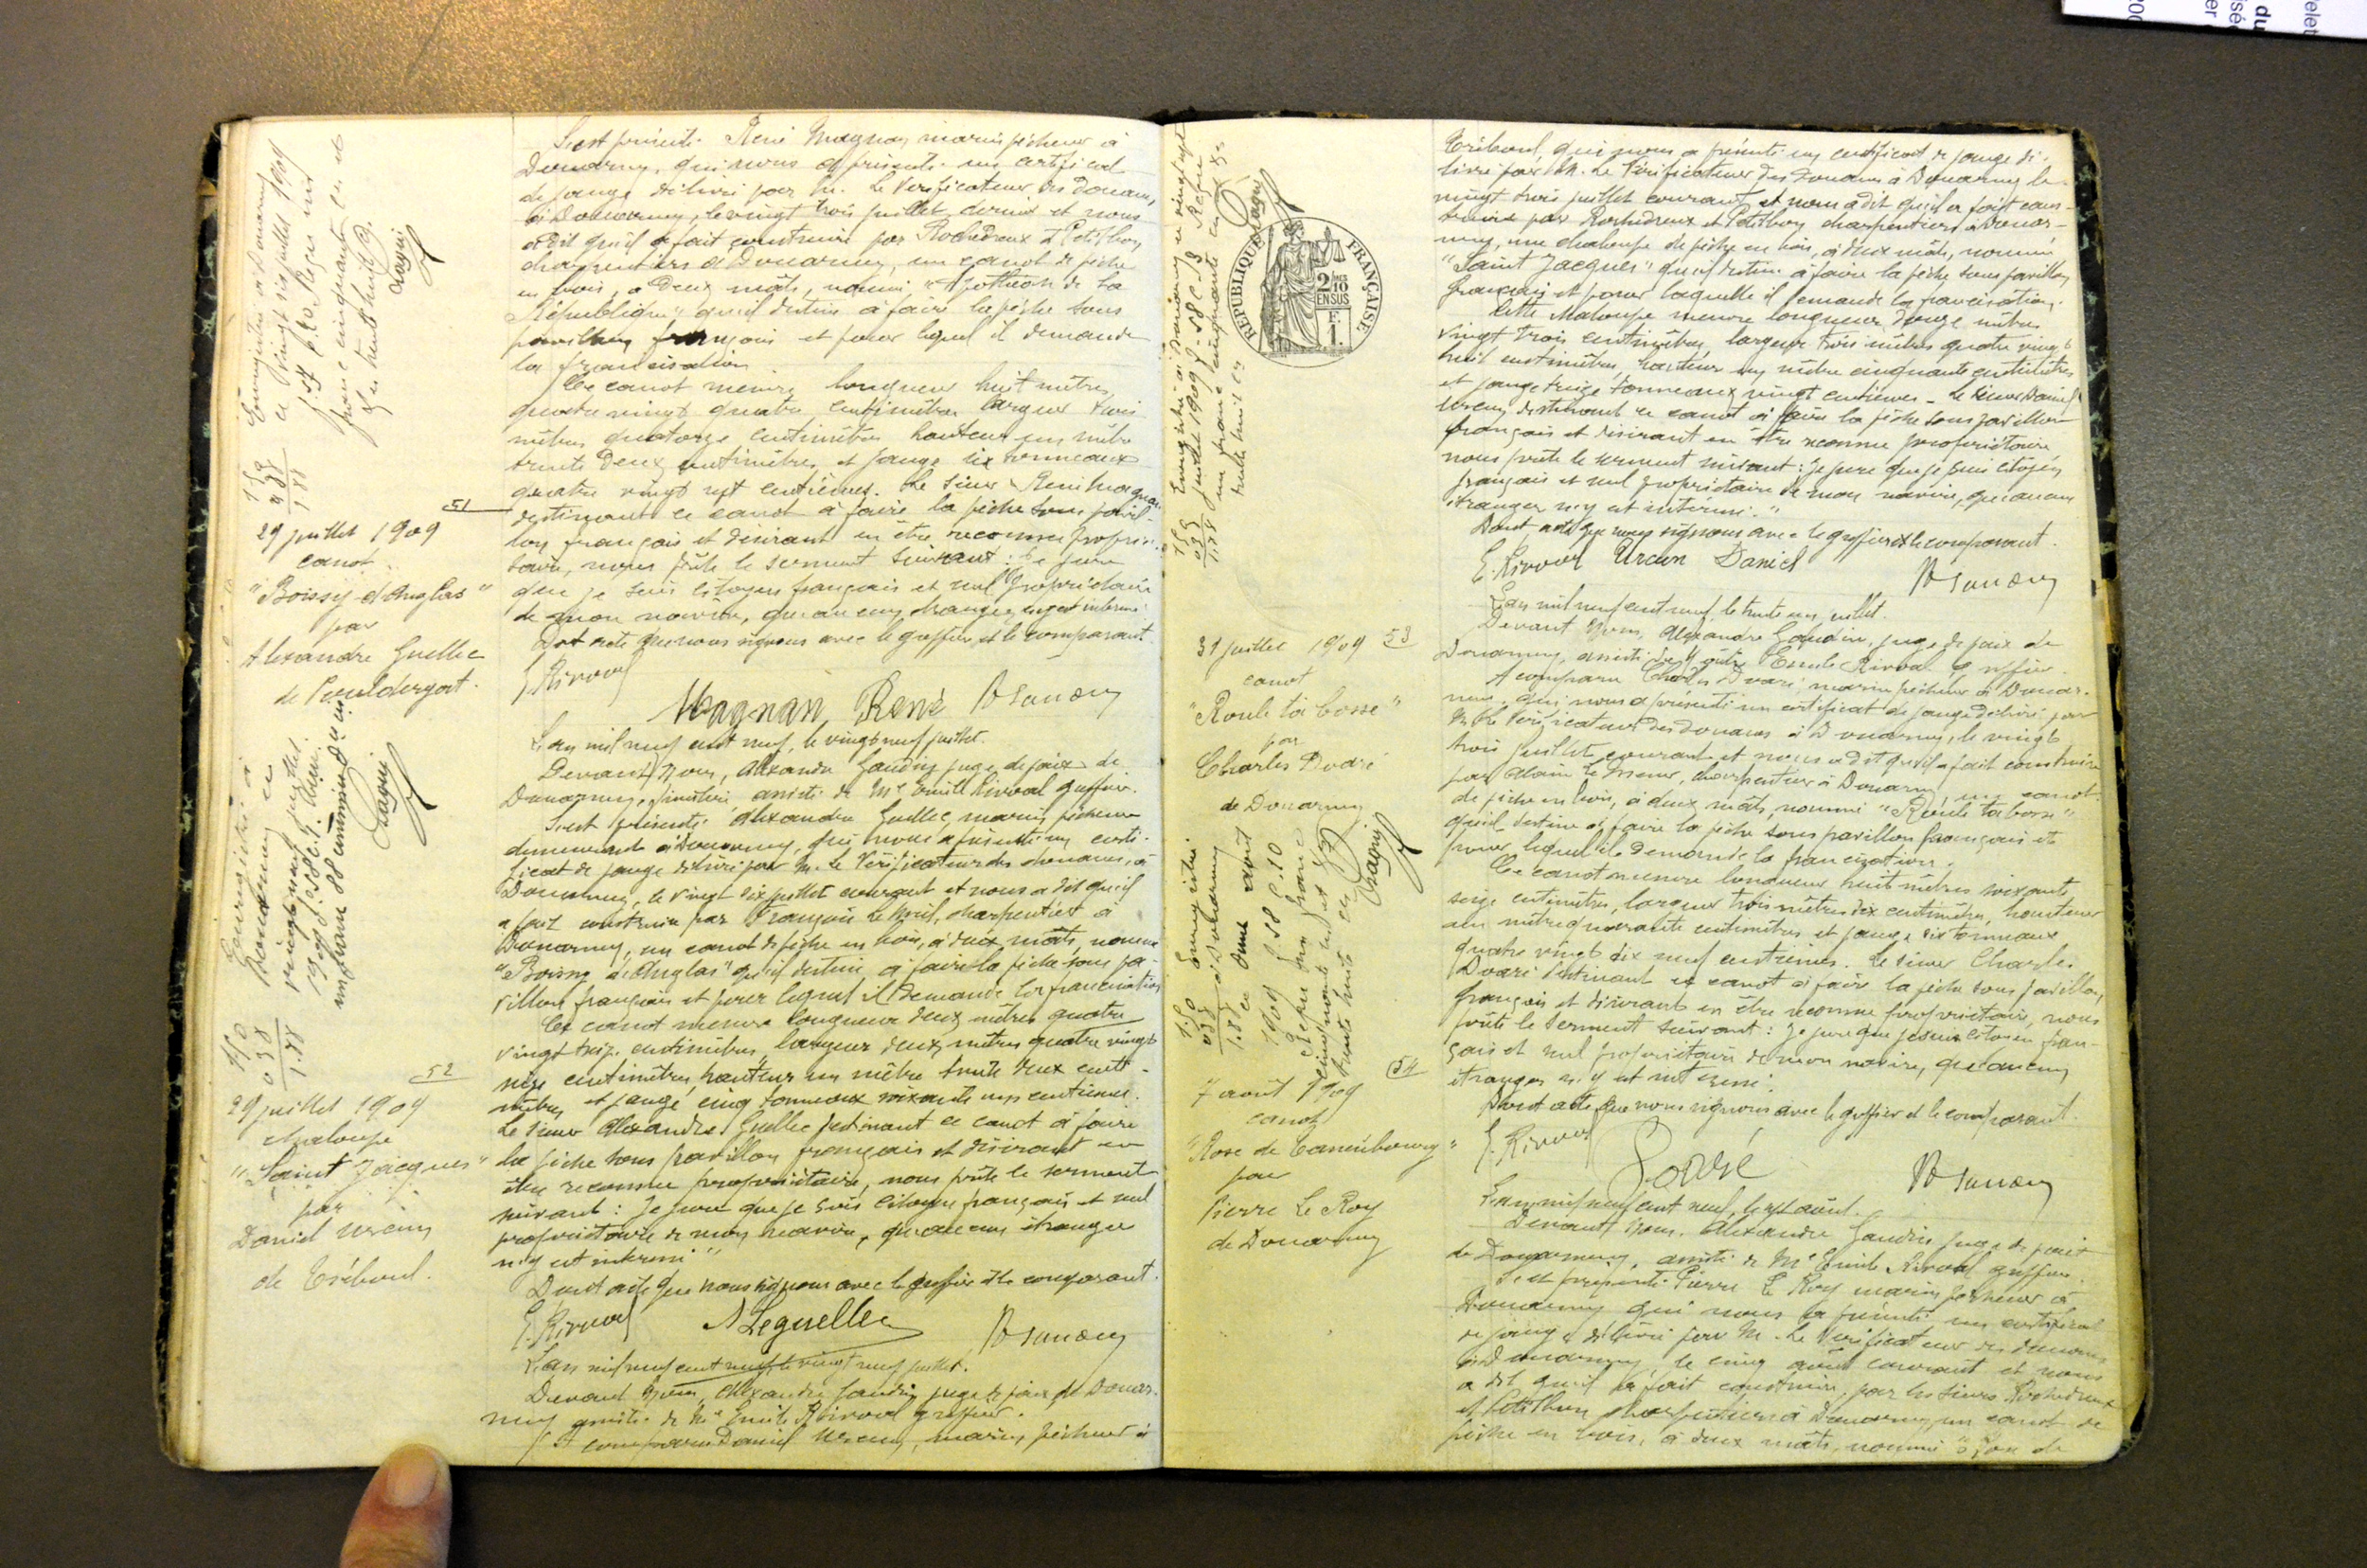 S'est présenté René Magnan marin pêcheur à
Douarnenez, qui nous a présenté un certificat
de jauge délivré par M. Le Vérificateur des Douanes,
à Douarnenez, le vingt trois juillet dernier et nous
a dit qu'il a fait construire par Rochedreux et Petitbon
charpentiers à Douarnenez, un canot de pêche
en bois, à deux mâts, nommé
République" qu'il destine à faire la pêche sous
pavillon français et pour lequel il demande
la francisation
Ce canot mesure longueur huit mètres
quatre vingt quatre centimètres largeur trois
mètres quatorze centimètres hauteur un mètre
trente deux centimètres et jauge six tonneaux
quatre vingt sept centièmes. Le sieur René Magnan
destinant ce canot à faire la pêche sous pavil-
lon français et désirant en être reconnu proprié-
taire, nous prête le serment suivant : Je jure
que je suis citoyen français et seul propriétaire
de mon navire, qu'aucun étranger n'y est intéressé
Dont acte que nous signons avec le greffier et le comparant.
E. Rirval
Magnan René
51
29 juillet 1909
canot
"Boissy-d'Anglas"
par
Alexandre Guellec
de Pouldergat.
L'an mil neuf cent neuf, le vingt neuf juillet.
Devant Nous, Alexandre Gaudin juge de paix de
Douarnenez, Finistère, assisté de Me Emile Rirval greffier.
S'est présenté Alexandre Guellec, marin pêcheur
demeurant à Douarnenez, qui nous a présenté un certi-
ficat de jauge délivré par M. Le Vérificateur des douanes, à
Douarnenez, le vingt six juillet courant et nous a dit qu'il
a fait construire par François Le charpentier à
Douarnenez, un canot de pêche en bois, à deux mâts, nommé
"Boissy d'Anglas" qu'il destine à faire la pêche sous pa-
villon français et pour lequel il demande la francisation
Ce canot mesure longueur deux mètres quatre
vingt treize centimètres, largeur deux mètres quatre vingt
seize centimètres, hauteur un mètre trente deux centi-
mètres et jauge cinq tonneaux soixante un centièmes.
Le sieur Alexandre Guellec destinant ce canot à faire
la pêche sous pavillon français et désirant en
être reconnu propriétaire, nous prête le serment
suivant : Je jure que je suis citoyen français et seul
propriétaire de mon navire, qu'aucun étranger
n'y est intéressé"
Dont acte que nous signons avec le greffier et le comparant.
E. Rirval
A Leguellec
52
29 juillet 1909
chaloupe
"Saint Jacques"
par
Daniel Urcun
de Tréboul.
L'an mil neuf cent neuf, le vingt neuf juillet.
Devant Nous, Alexandre Gaudin juge de paix de Douar-
nenez assisté de Me Emile Rirval greffier.
A comparu Daniel Urcun, marin pêcheur à
Tréboul, qui nous a présenté un certificat de jauge dé-
livré par M. Le Vérificateur des Douanes à Douarnenez le
vingt trois juillet courant et nous a dit qu'il a fait cons-
truire par Rochedreux et Petitbon charpentiers à Douar-
nenez, une chaloupe de pêche en bois, à deux mâts, nommée
"Saint Jacques" qu'il destine à faire la pêche sous pavillon
français et pour laquelle il demande la francisation.
Cette chaloupe mesure longueur douze mètres
vingt trois centimètres, largeur trois mètres quatre vingt
huit centimètres, hauteur un mètre cinquante centimètres
et jauge treize tonneaux vingt centièmes - Le sieur Daniel
Urcun destinant ce canot à faire la pêche sous pavillon
français et désirant en être reconnu propriétaire
nous prête le serment suivant : Je jure que je suis citoyen
français et seul propriétaire de mon navire, qu'aucun
étranger n'y est intéressé."
Dont acte que nous signons avec le greffier et le comparant.
E. Rirval Urcun Daniel
REPUBLIQUE FRANÇAISE
2/10
EN SUS
F.
1.
53
31 juillet 1909
canot
"Roule ta bosse"
par
Charles Doaré
de Douarnenez
L'an mil neuf cent neuf, le trente un juillet.
Devant Nous, Alexandre Gaudin, juge de paix de
Douarnenez, assisté de Maître Emile Rirval greffier
A comparu Charles Doaré, marin pêcheur à Douar-
nenez, qui nous a présenté un certificat de jauge délivré par
M. Le Vérificateur des douanes à Douarnenez, le vingt
trois juillet courant et nous a dit qu'il a fait construire
par Alain Le charpentier à Douarnenez, un canot
de pêche en bois, à deux mâts, nommé "Roule ta bosse"
qu'il destine à faire la pêche sous pavillon français et
pour lequel il demande la francisation.
Ce canot mesure longueur huit mètres soixante
seize centimètres, largeur trois mètres dix centimètres, hauteur
un mètre quarante centimètres et jauge six tonneaux
quatre vingt dix neuf centièmes. Le sieur Charles
Doaré destinant ce canot à faire la pêche sous pavillon
français et désirant en être reconnu propriétaire, nous
prête le serment suivant : Je jure que je suis citoyen fran-
çais et seul propriétaire de mon navire, qu'aucun
étranger n'y est intéressé.
Dont acte que nous signons avec le greffier et le comparant.
E. Rirval
Doaré
54
7 août 1909
canot
"Rose de
par
Pierre Le Roy
de Douarnenez
L'an mil neuf cent neuf, le sept août.
Devant Nous, Alexandre Gaudin juge de paix
de Douarnenez, assisté de Me Emile Rirval greffier.
S'est présenté Pierre Le Roy marin pêcheur à
Douarnenez qui nous a présenté un certificat
de jauge délivré par M. Le Vérificateur des douanes
à Douarnenez, le cinq août courant et nous
a dit qu'il a fait construire par les sieurs Rochedreux
et Petitbon charpentiers à Douarnenez, un canot de
pêche en bois, à deux mâts, nommé